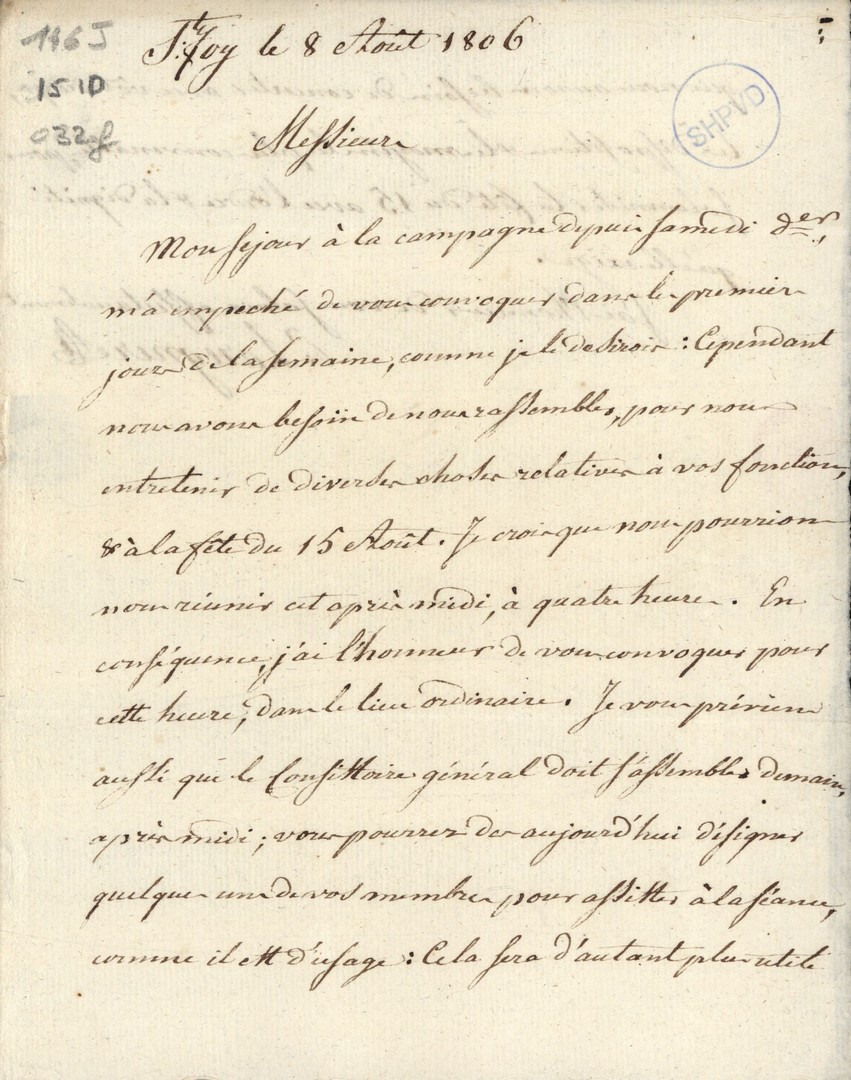 146J
15 1D
032 f
SHPVD
Ste. Foy le 8 Août 1806
Messieurs
Mon séjour à la campagne depuis samedi der.,
m'a empeché de vous convoquer dans les premiers
jours de la semaine, comme je le desirois : Cependant
nous avons besoin de nous rassembler, pour nous
entretenir de diverses choses relatives à vos fonctions,
& à la fête du 15 Août. Je crois que nous pourrions
nous réunir cet après midi, à quatre heures. En
conséquence, j'ai l'honneur de vous convoquer pour
cette heure, dans le lieu ordinaire. Je vous préviens
aussi que le Consistoire général doit s'assembler demain,
après midi ; vous pourrez des aujourd'hui désigner
quelques uns de vos membres pour assister à la séance,
comme il est d'usage : Cela sera d'autant plus utile